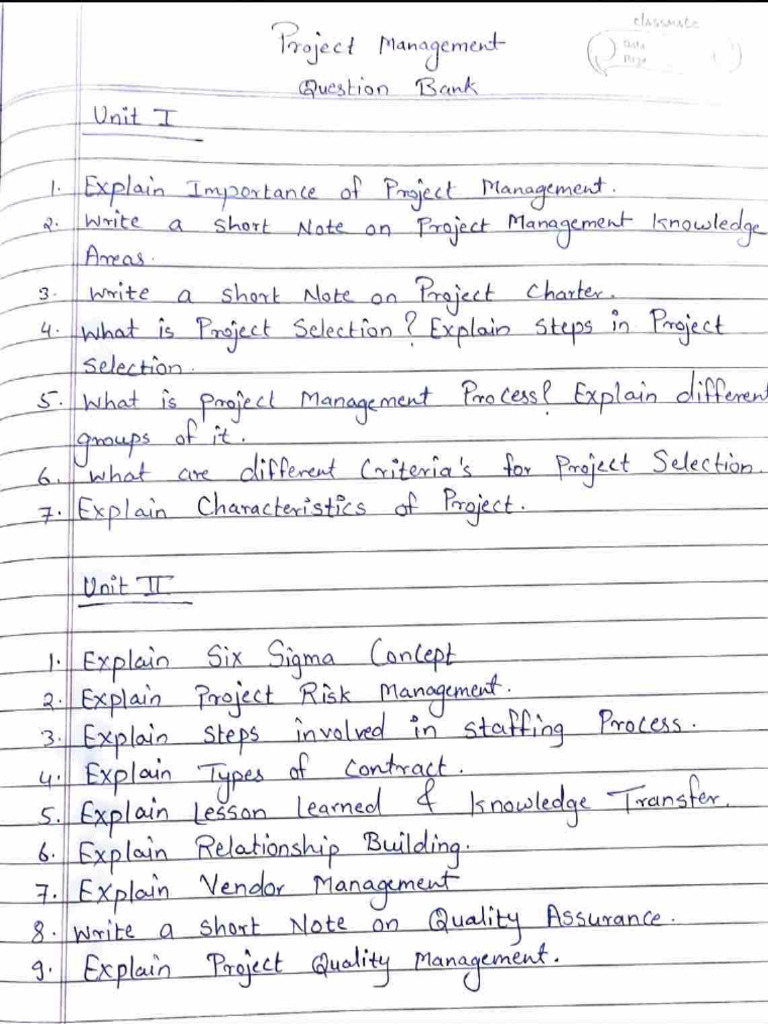 classmate
Date
Page
Project Management
Question Bank
Unit I
1. Explain Importance of Project Management.
2. Write a short Note on Project Management knowledge
Areas.
3. Write a short Note on Project Charter.
4. What is Project Selection? Explain steps in Project
selection.
5. What is project Management Process? Explain different
groups of it.
6. What are different Criteria's for Project Selection.
7. Explain Characteristics of Project.
Unit II
1. Explain Six Sigma Concept
2. Explain Project Risk Management.
3. Explain steps involved in staffing Process.
4. Explain Types of contract.
5. Explain Lesson learned & knowledge Transfer.
6. Explain Relationship Building.
7. Explain Vendor Management
8. Write a short Note on Quality Assurance.
9. Explain Project Quality Management.